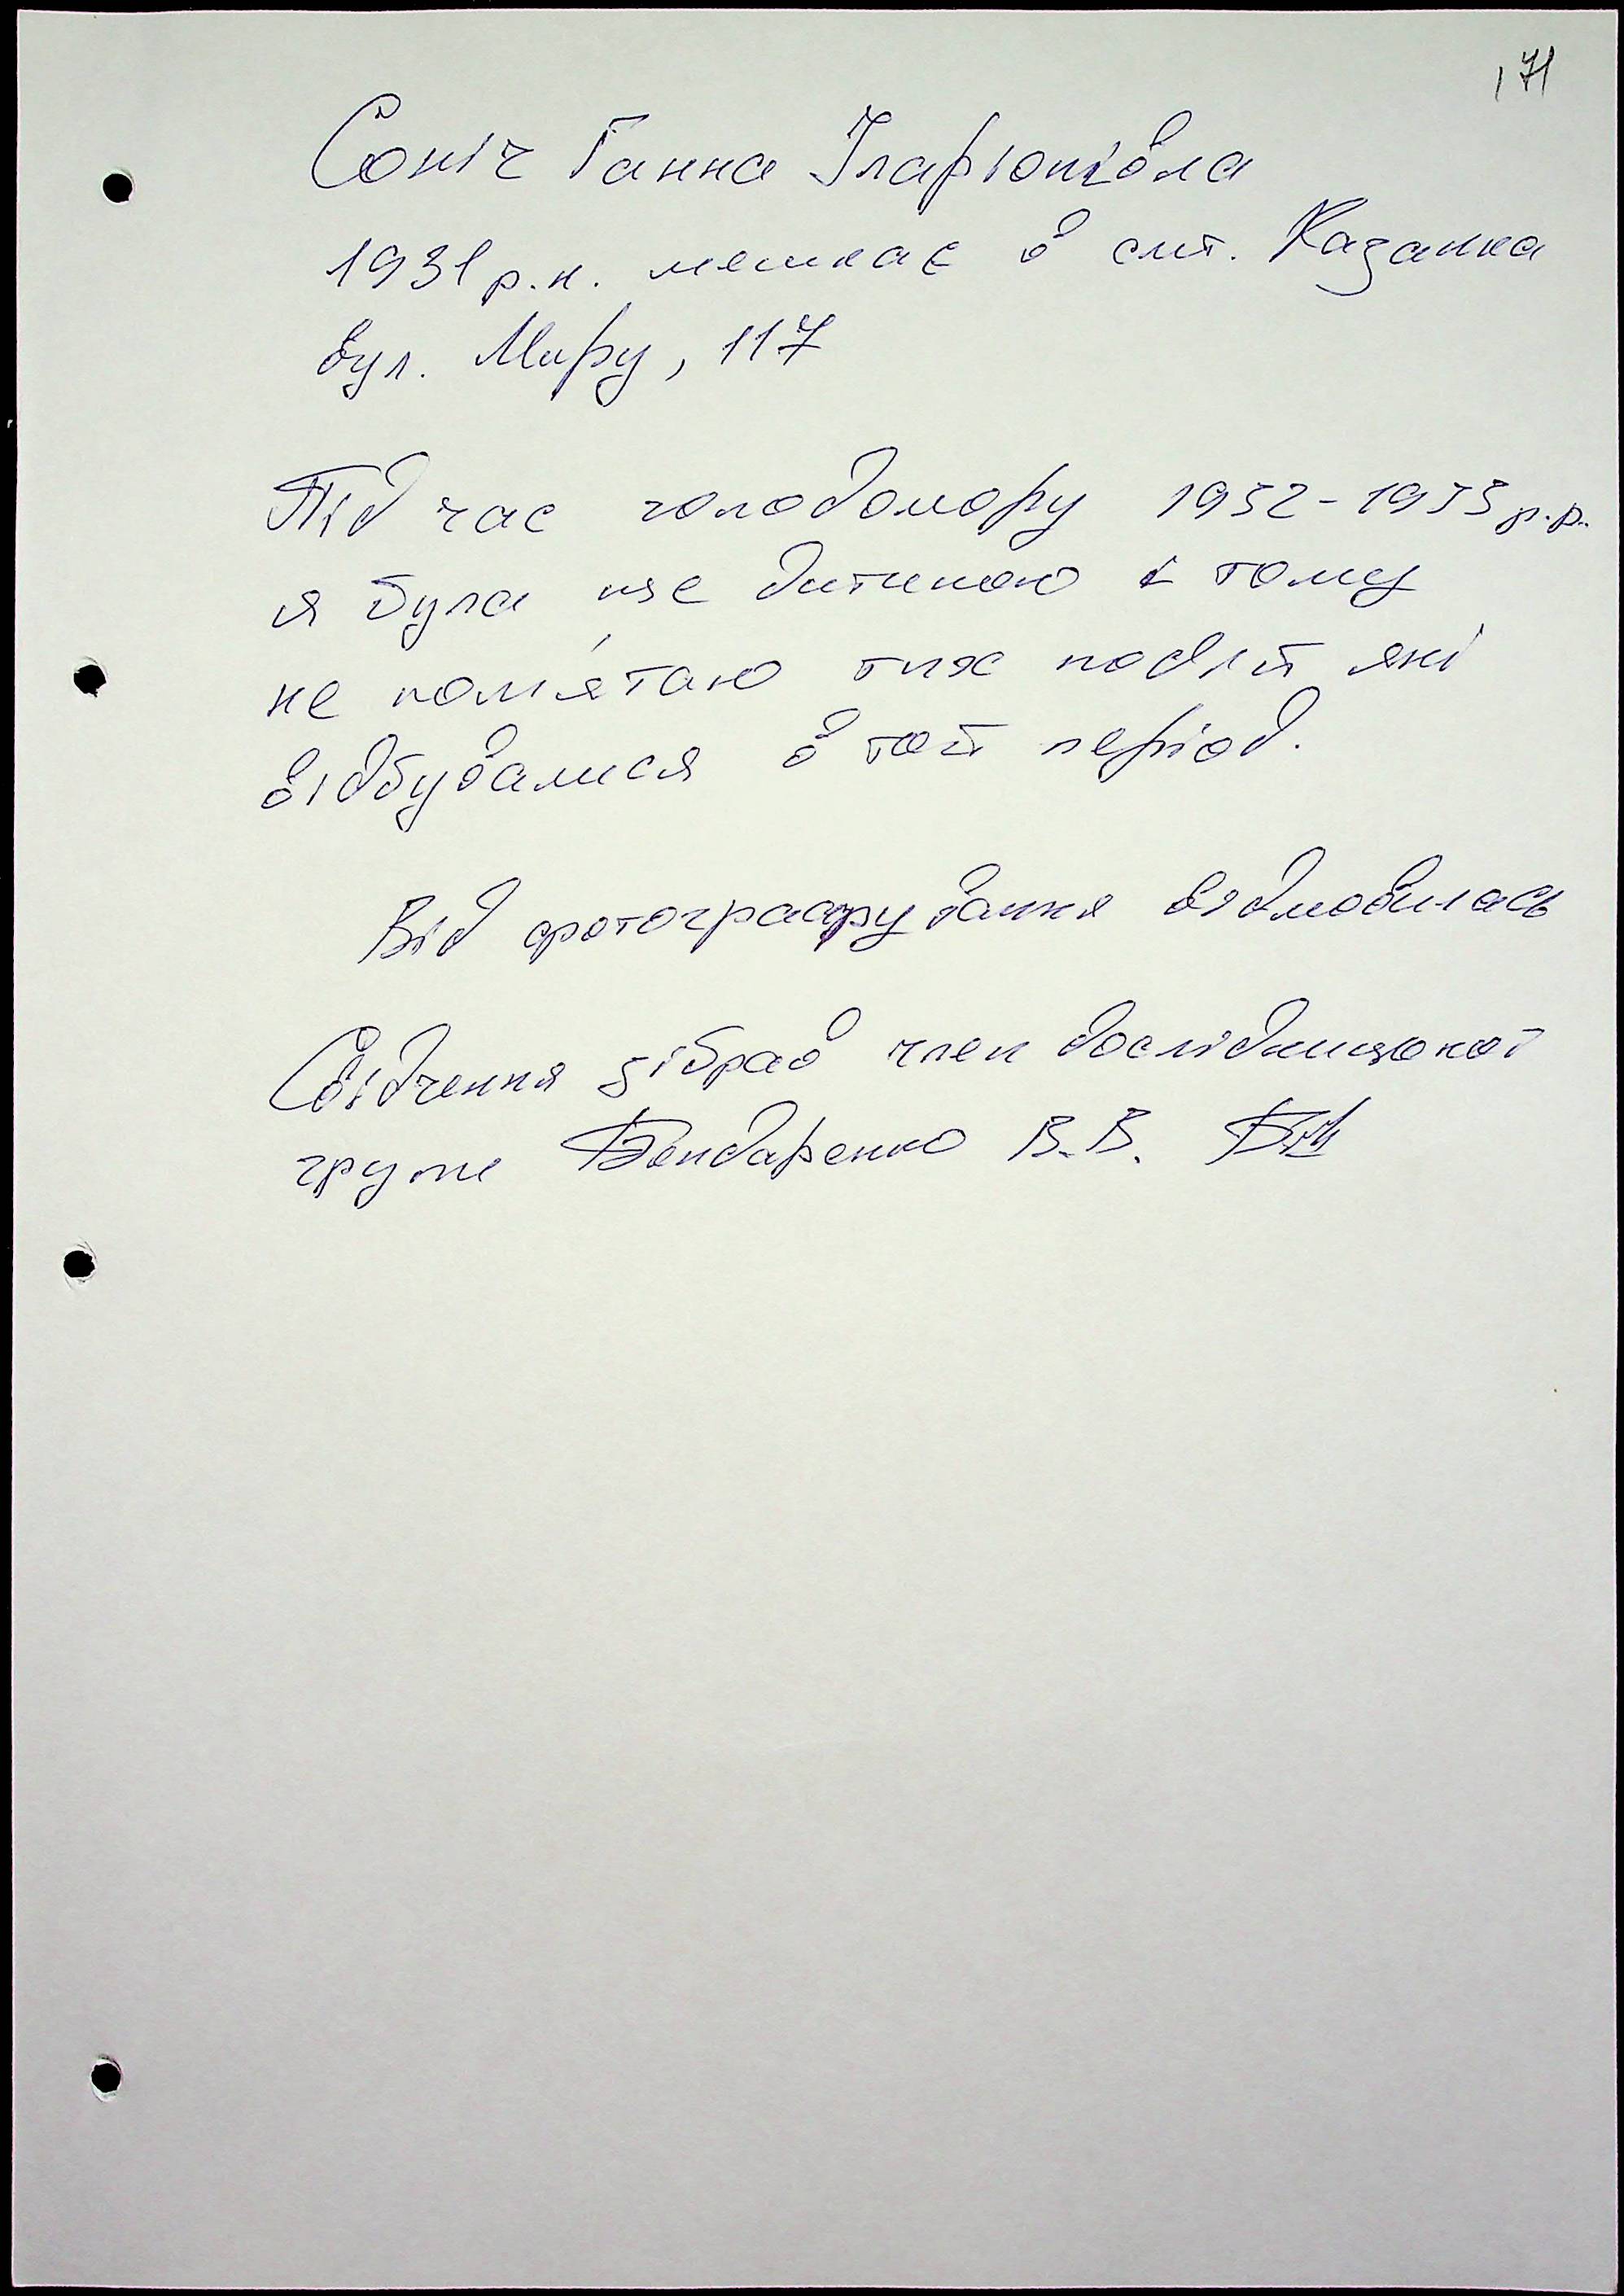 171
Соніч Ганна Іларіонівна
1931 р.н. мешкає в смт. Казанка
вул. Миру, 117
Під час голодомору 1932-1933 р.р.
я була ще дитиною і тому
не пам'ятаю тих подій які
відбувалися в той період.
Від фотографування відмовилась
Свідчення зібрав член дослідницької
групи Бондаренко В.В.